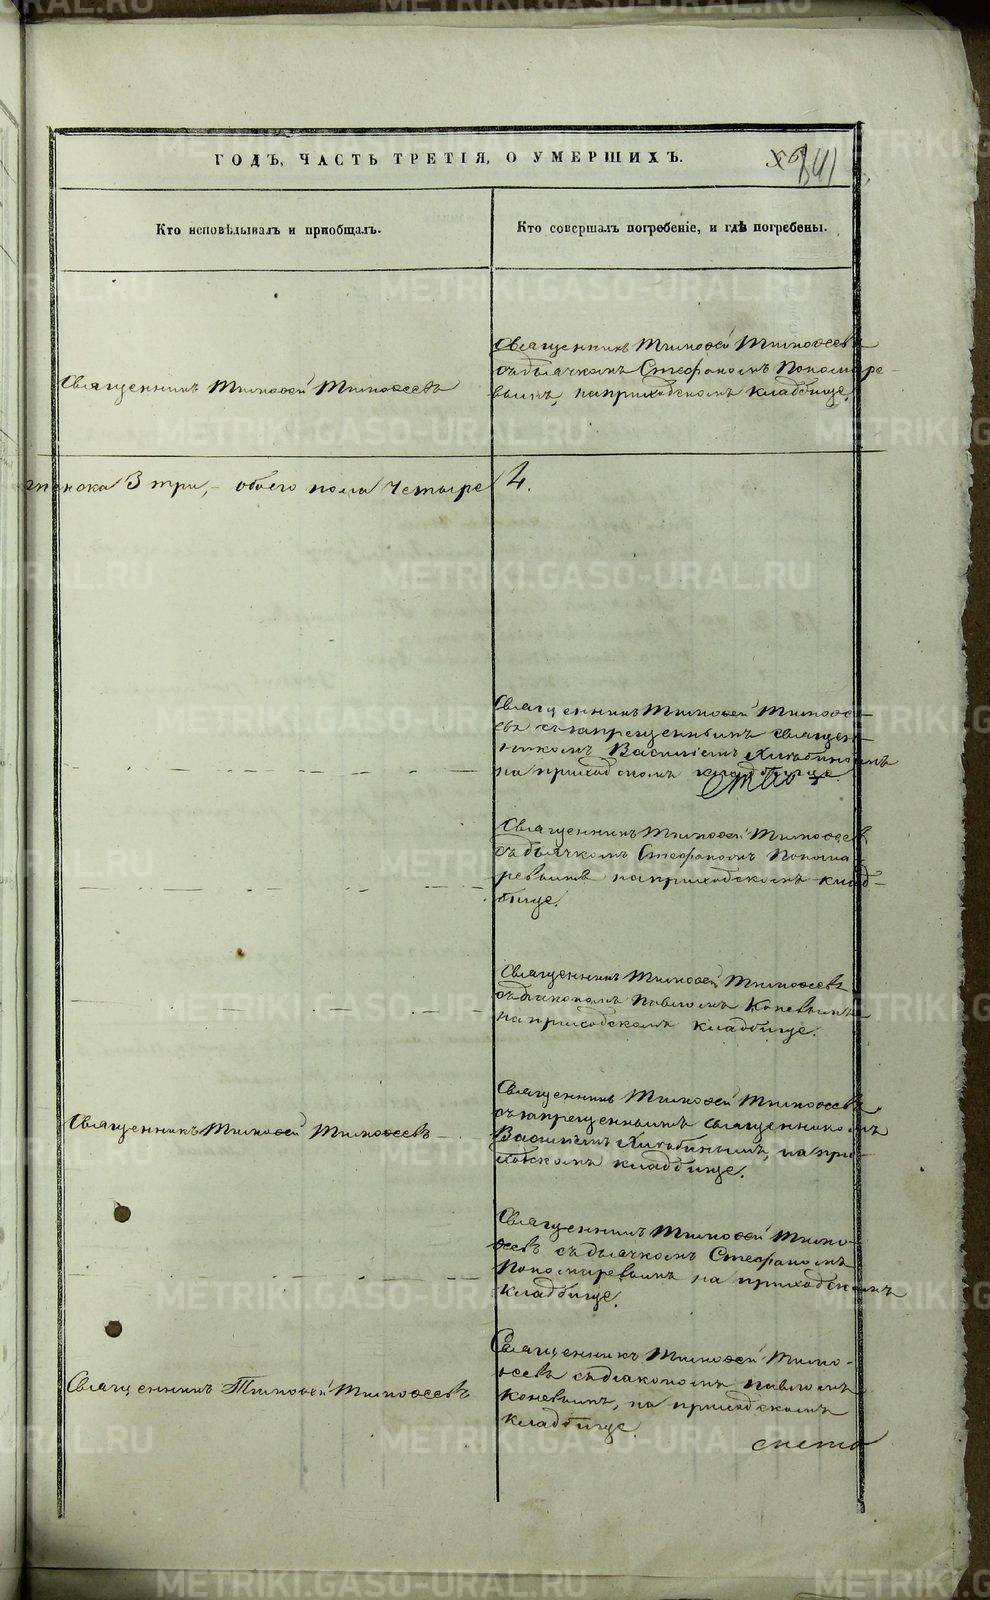 ГОДЪ, ЧАСТЬ ТРЕТІЯ, О УМЕРШИХЪ.
841
Кто исповѣдывалъ и пріобщалъ.
Кто совершалъ погребеніе, и гдѣ погребены.
Священникъ Тимоѳей Тимоѳеевъ
Священникъ Тимоѳей Тимоѳеевъ
съ дьячкомъ Стефаномъ Пономаре-
вымъ, на приходскомъ кладбище.
3 три, – обоего пола четыре 4.
Священникъ Тимоѳей Тимоѳе-
евъ съ запрещеннымъ священ-
никомъ Василіемъ Хлебинымъ
на приходскомъ кладбище
Священникъ Тимоѳей Тимоѳеев
съ дьячкомъ Стефаномъ Понома-
ревымъ на приходскомъ клад-
бище.
Священникъ Тимоѳей Тимоѳеевъ
съ діакономъ Павломъ Коневымъ
на приходскомъ кладбище.
Священникъ Тимоѳей Тимоѳеевъ
Священникъ Тимоѳей Тимоѳеевъ
съ запрещеннымъ священникомъ
Василіемъ Хлебинымъ, на при-
ходскомъ кладбище.
Священникъ Тимоѳей Тимо-
ѳеевъ съ дьячкомъ Стефаномъ
Пономаревымъ на приходскомъ
кладбище.
Священникъ Тимоѳей Тимоѳеевъ
Священникъ Тимоѳей Тимо-
ѳеевъ съ діакономъ Павломъ
Коневымъ, на приходскомъ
кладбище
METRIKI.GASO-URAL.RU